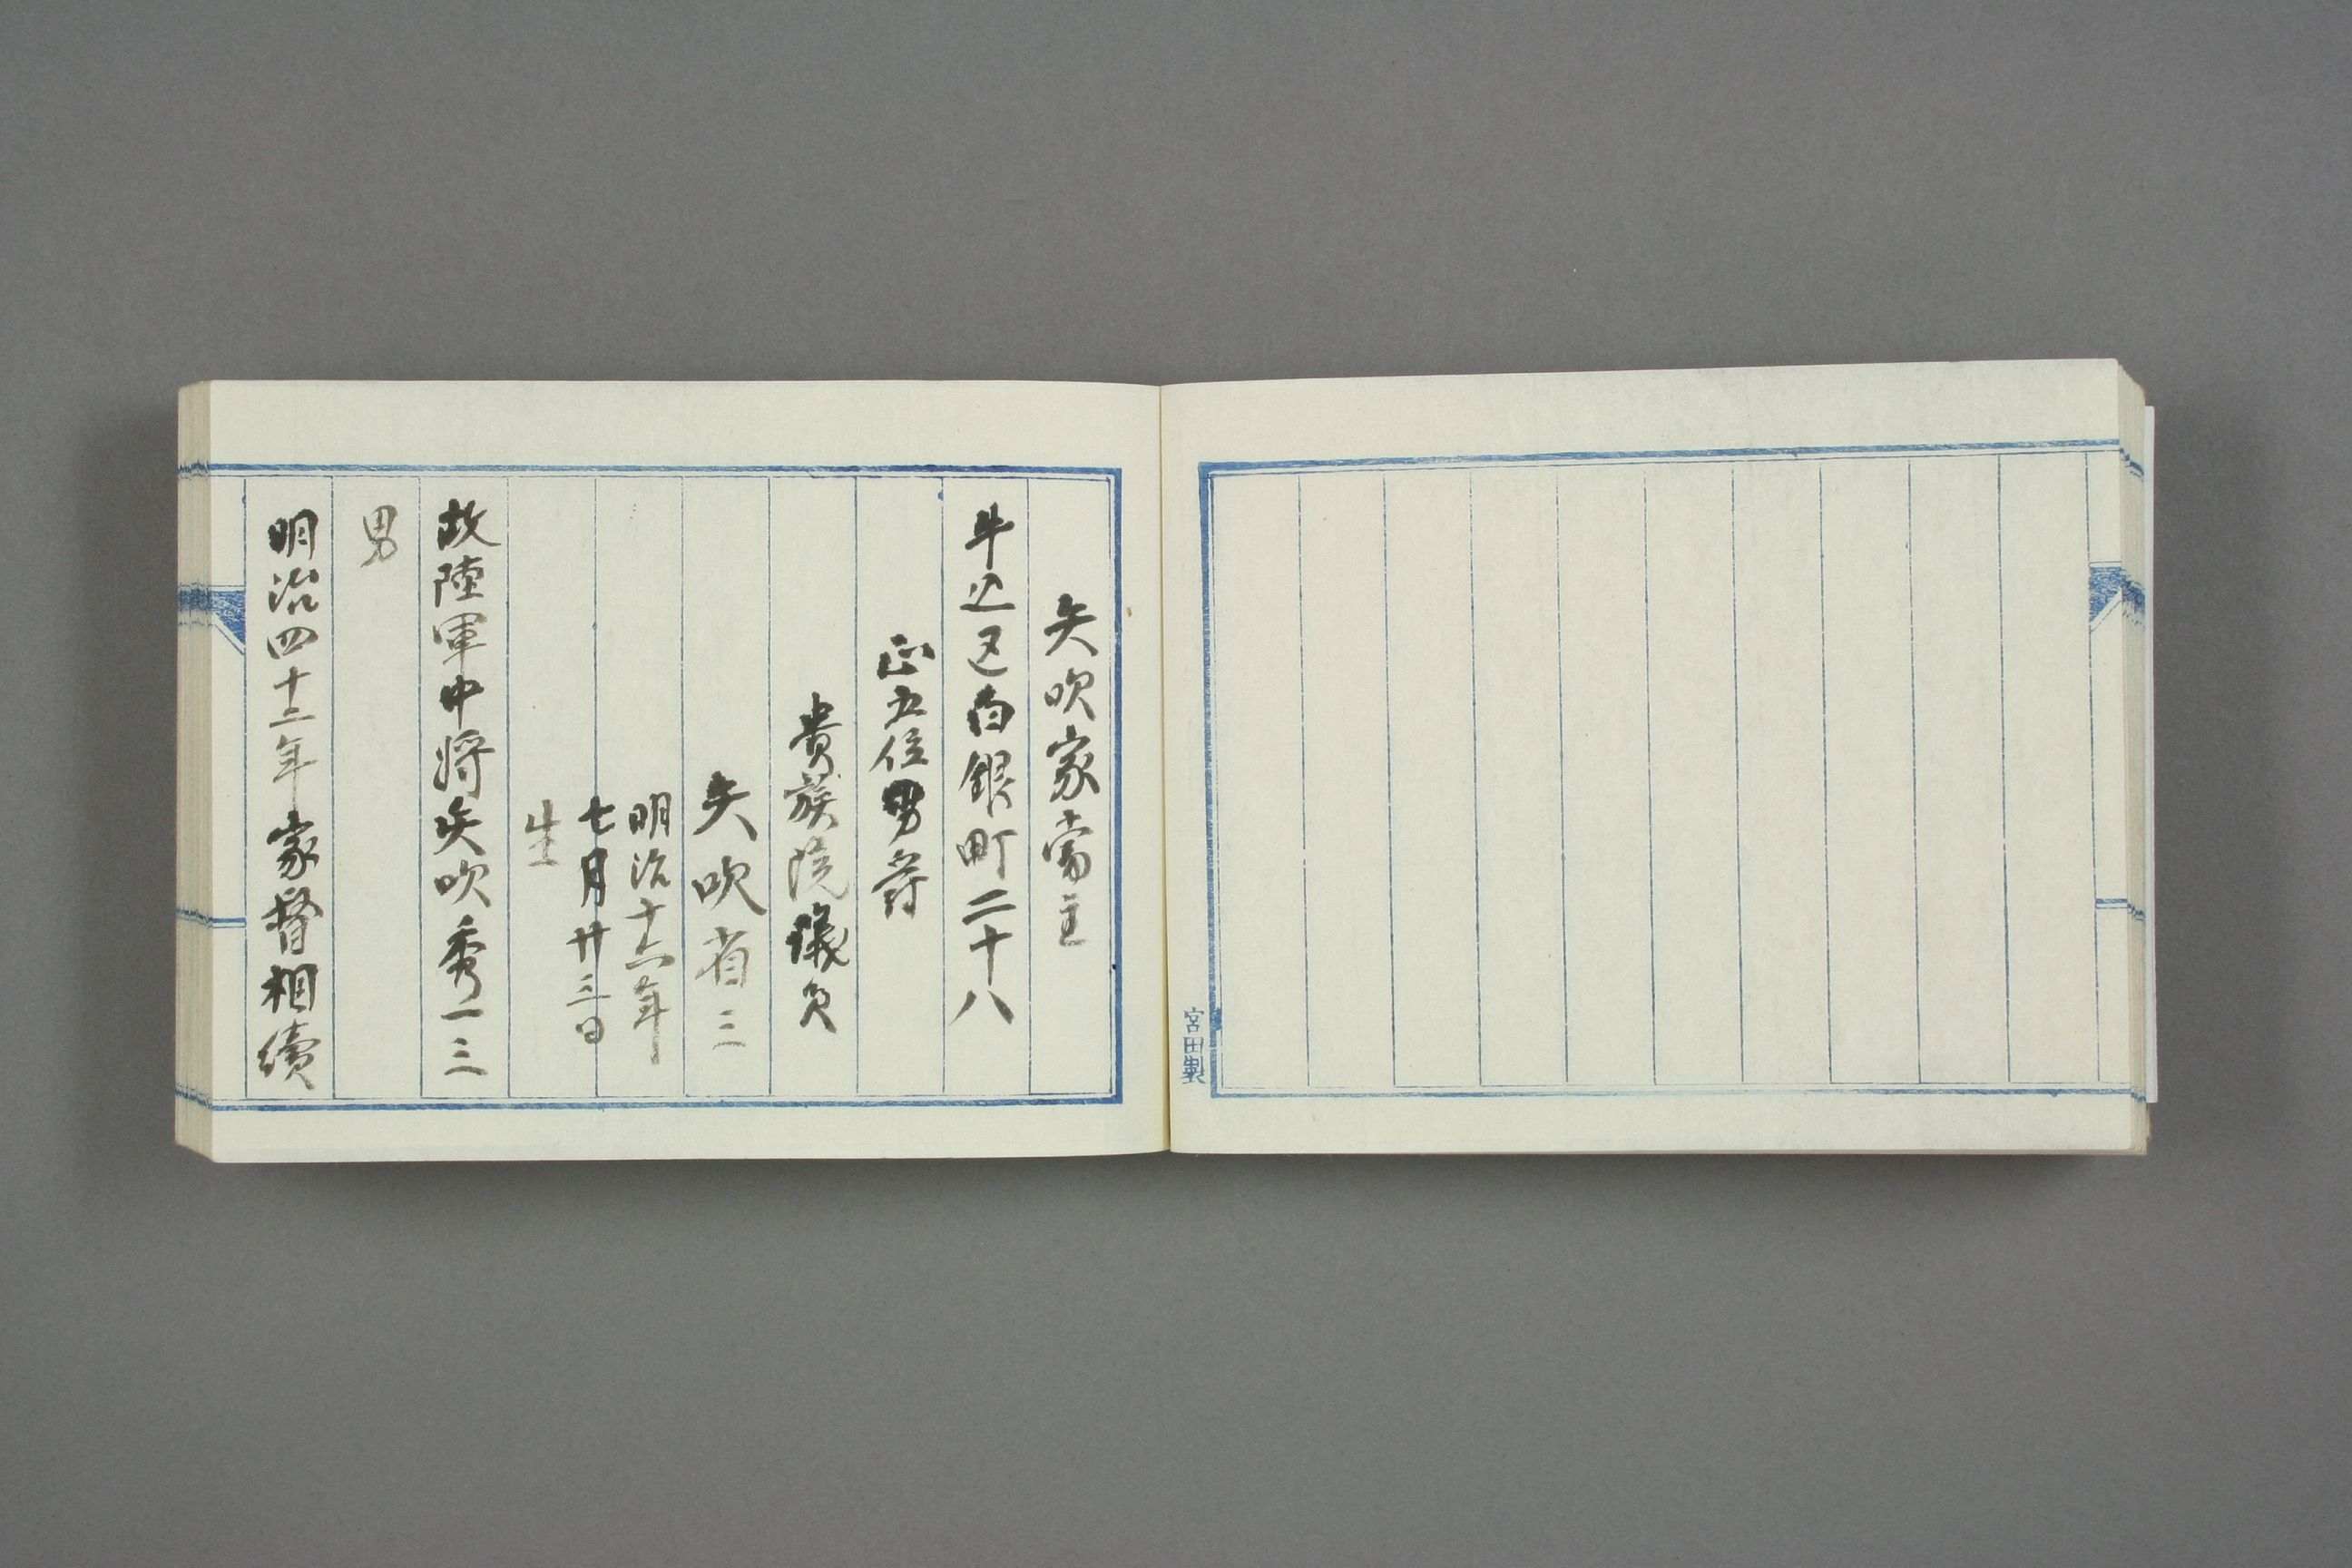 宮田製
矢吹家當主
牛込区白銀町二十八
正五位男爵
貴族院議員
矢吹省三
明治十六年
七月廿三日
生
故陸軍中将矢吹秀一三
男
明治四十二年家督相續